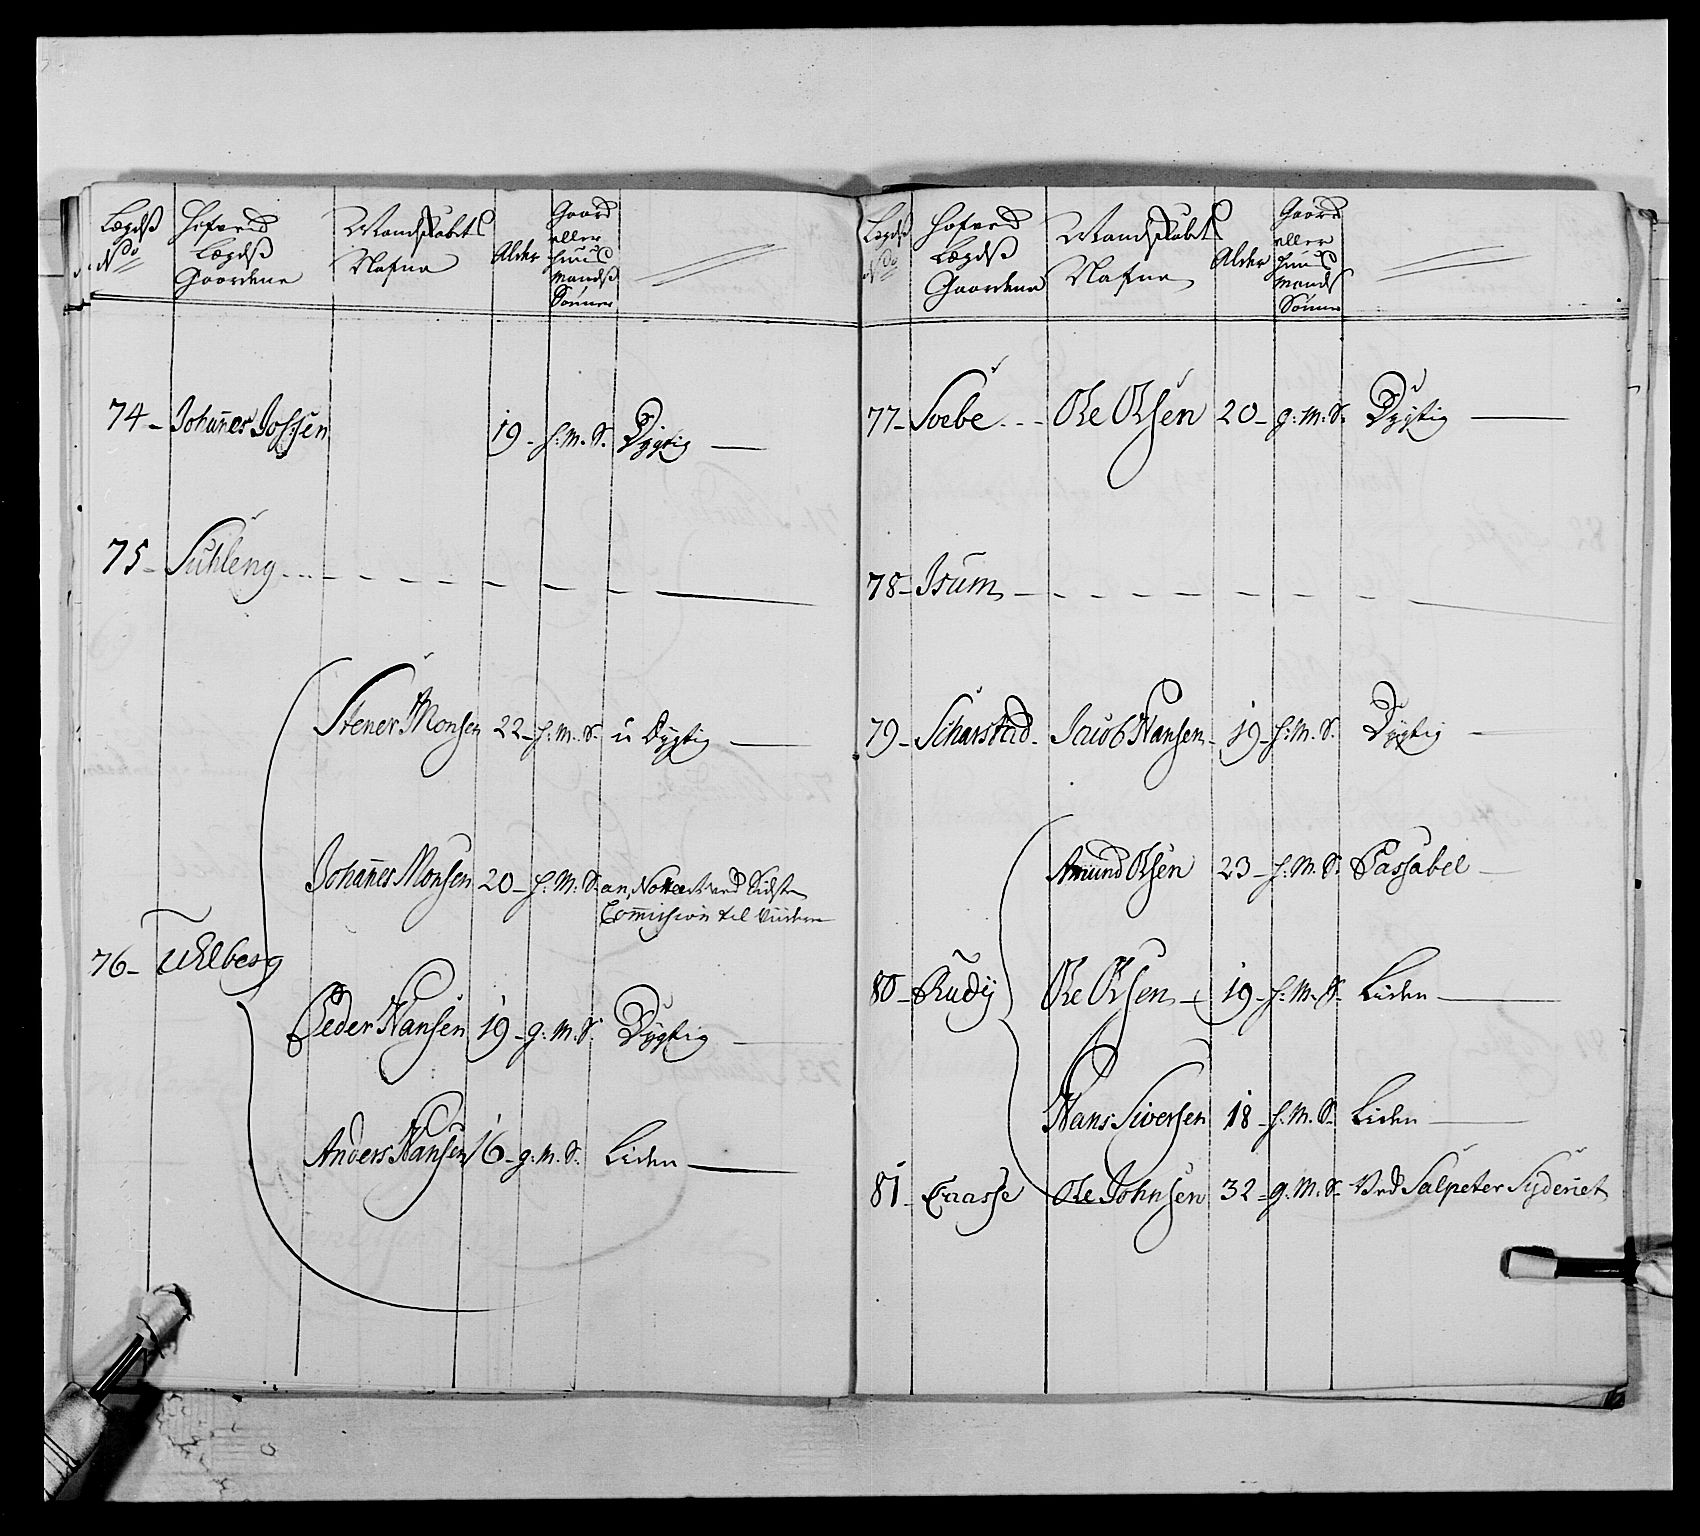 Lægdß
No
Hofved
Lægdß
Gaardene
Mandskabets
Nafne
Alder
Gaard
eller
Huus
Mandß
Sønner
74 - Johannes Jossen 19 - H. M. S. Dygtig
75 - Suhleng
Stener Monsen 22 - H. M. S. u Dygtig
Johannes Monsen 20 - H. M. S. an Noteret ved Sidste
Commission til
76 - Welberg
Peder Hansen 19 - g. M. S. Dygtig
Anders Hansen 16 - g. M. S. Liden
Lægdß
No
Hofved
Lægdß
Gaardene
Mandskabets
Nafne
Alder
Gaard
eller
Huus
Mands
Sønner
77 - Soebe Ole Olsen 20 - g. M. S. Dygtig
78 - Isum
79 - Scharstad Jacob Hansen 19 - H. M. S. Dygtig
Amund Olsen 23 - H. M. S. Passabel
80 - Rudy Ole Olsen 19 - H. M. S. Liden
Hans Siversen 18 - H. M. S. Liden
81 - Faasse Ole Johnsen 32 - g. M. S. Ved Salpeter Syderiet